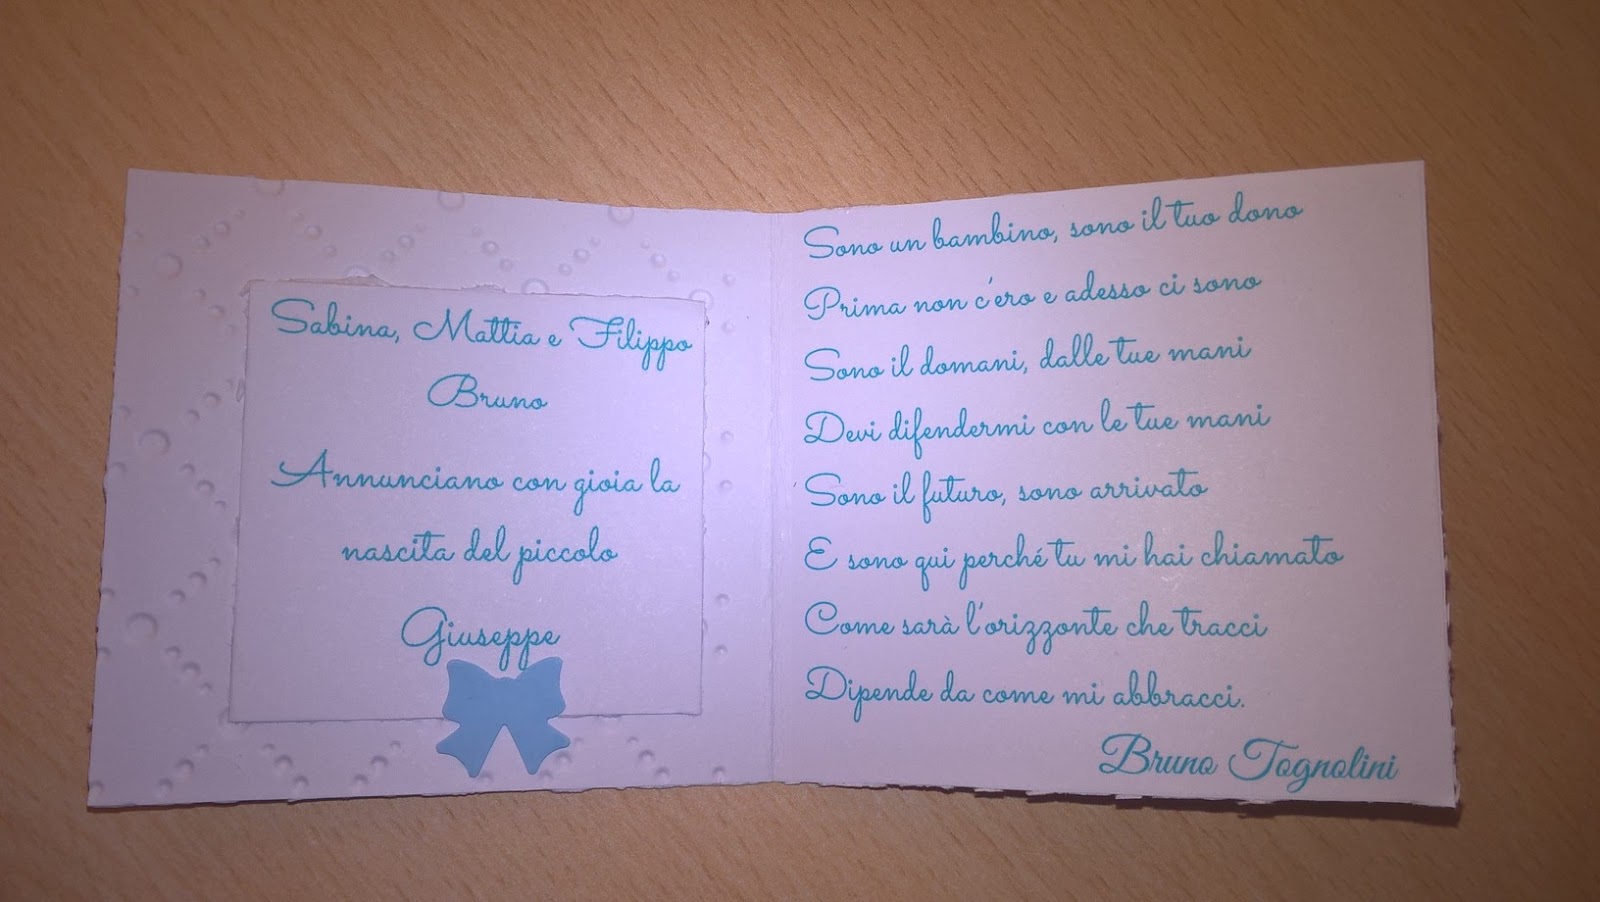 Sabina, Mattia e Filippo
Bruno
Annunciano con gioia la
nascita del piccolo
Giuseppe
Sono un bambino, sono il tuo dono
Prima non c'ero e adesso ci sono
Sono il domani, dalle tue mani
Devi difendermi con le tue mani
Sono il futuro, sono arrivato
E sono qui perché tu mi hai chiamato
Come sarà l'orizzonte che tracci
Dipende da come mi abbracci.
Bruno Tognolini